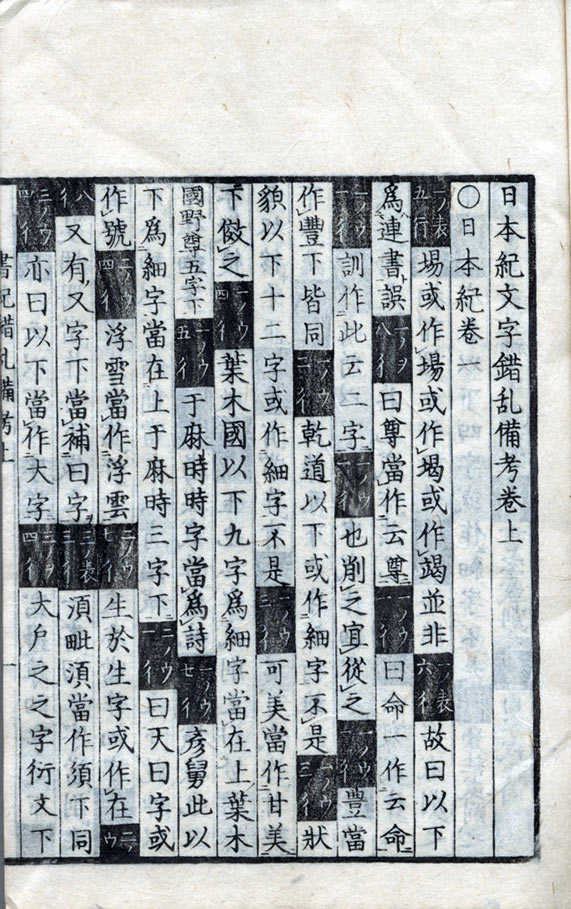 日本紀文字錯乱備考巻上
〇日本紀巻一
一ノ表五行 場或作場或作堨或作竭並非 一ノ表六行 故曰以下
爲連書誤 一ノヲ八行 曰尊當作云尊 一ノウ一行 曰命一作云命
一ノウ一行 訓作此云二字 一ノウ一行 也削之宜從之 一ノウ一行 豐當
作豐下皆同 一ノウ二行 乾道以下或作細字不是 一ノウ三行 狀
貌以下十二字或作細字不是 一ノウ三行 可美當作甘美
下倣之 一ノウ四行 葉木國以下九字爲細字當在上葉木
國野尊五字下 一ノウ五行 于麻時時字當爲詩 一ノウ七行 彦舅此以
下爲細字當在上于麻時三字下 二ノウ一行 曰天曰字或
作號 二ノウ四行 浮雪當作浮雲 二ノウ七行 生於生字或作在 二ノウ
八行 又有又字下當補曰字 三ノ表三行 湏毗湏當作須下同
三ノウ四 亦曰以下當作大字 三ノヲ四行 大戸之之字衍文下
書紀錯乱備考上
一